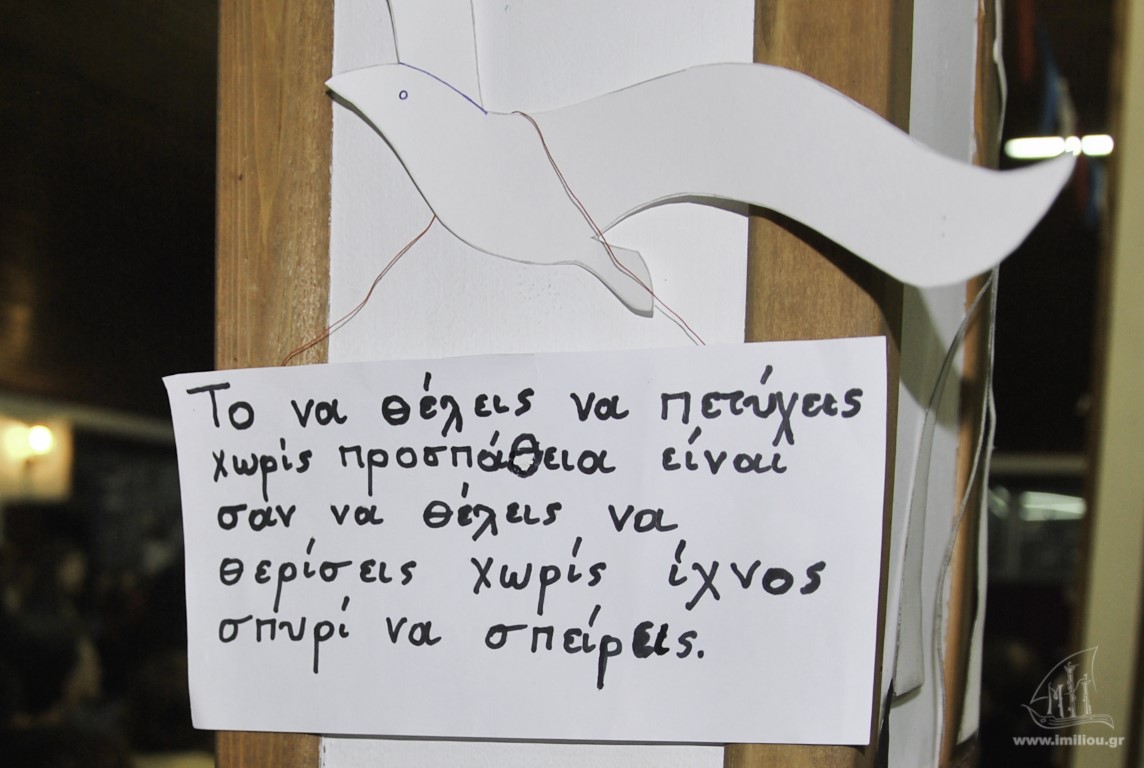 Το να θέλεις να πετύχεις
χωρίς προσπάθεια είναι
σαν να θέλεις να
θερίσεις χωρίς ίχνος
σπυρί να σπείρεις.
www.imiliou.gr